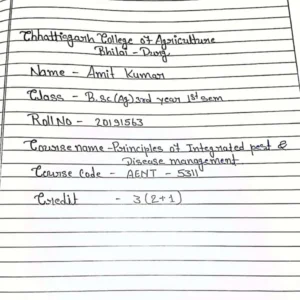 Chhattisgarh College of Agriculture
Bhilai - Durg
Name - Amit Kumar
Class - B.sc (Ag) 3rd year 1st sem
Roll No - 20191563
Course name - Principles of Integrated pest &
Disease management
Course Code - AENT - 5311
Credit - 3 (2+1)